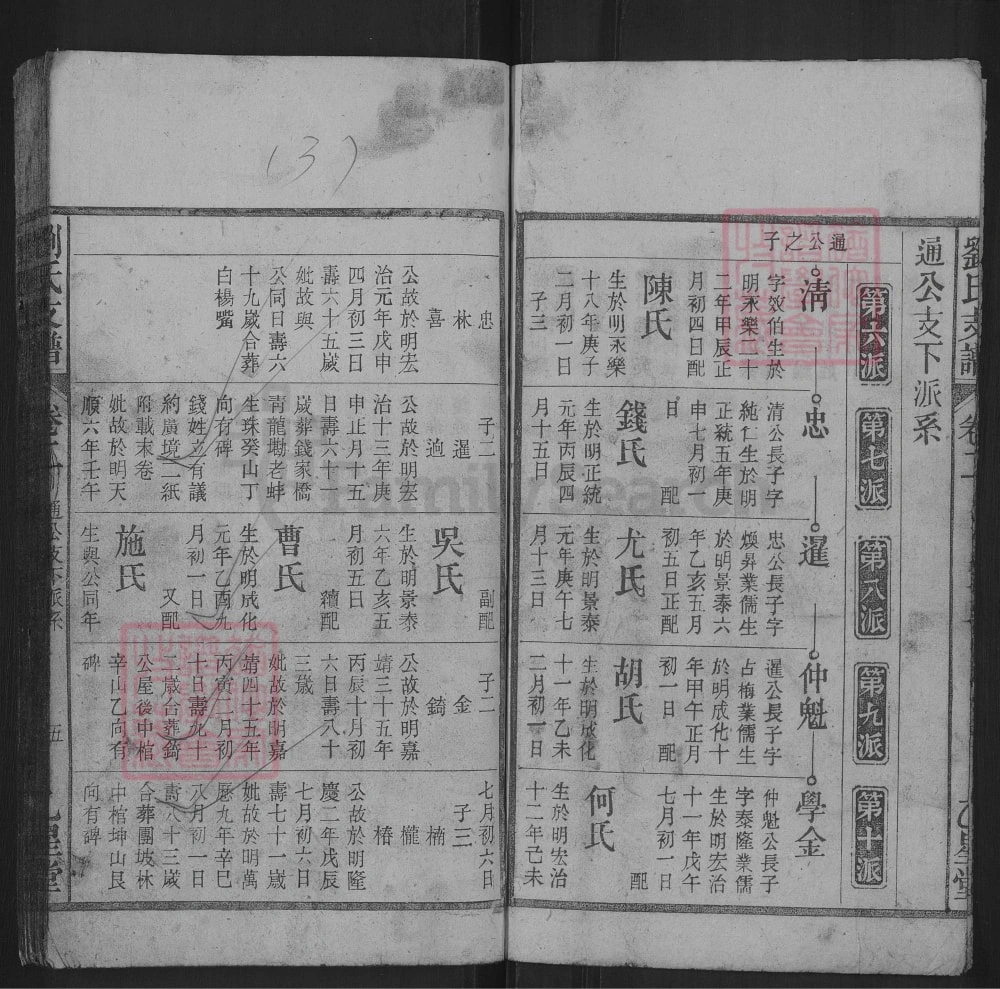 通公支下派系
第六派
第七派
第八派
第九派
第十派
通公之子
清
字效伯生於
明永樂二十
二年甲辰正
月初四日配
陳氏
生於明永樂
十八年庚子
二月初一日
子三
忠
清公長子字
純仁生於明
正統五年庚
申七月初一
日 配
錢氏
生於明正統
元年丙辰四
月十五日
暹
忠公長子字
煥昇業儒生
於明景泰六
年乙亥五月
初五日正配
尤氏
生於明景泰
元年庚午七
月十三日
仲魁
暹公長子字
占梅業儒生
於明成化十
年甲午正月
初一日 配
胡氏
生於明成化
十一年乙未
二月初一日
學金
仲魁公長子
字秦隆業儒
生於明宏治
十一年戊午
七月初一日
配
何氏
生於明宏治
十二年己未
忠
林
喜
公故於明宏
治元年戊申
四月初三日
壽六十五歲
妣故與
公同日壽六
十九歲合葬
白楊嘴
子二
暹
逈
公故於明宏
治十三年庚
申正月十五
日壽六十一
歲葬錢家橋
青龍坳老蚌
生珠癸山丁
向有碑
錢姓立有議
約廣境二紙
附載末卷
妣故於明天
順六年壬午
副配
吳氏
生於明景泰
六年乙亥五
月初五日
續配
曹氏
生於明成化
元年乙酉九
月初一日
又配
施氏
生與公同年
子二
金
錡
公故於明嘉
靖三十五年
丙辰十月初
六日壽八十
三歲
妣故於明嘉
靖四十五年
丙寅二月初
十日壽九十
二歲合葬錡
公屋後中棺
辛山乙向有
碑
七月初六日
子三
楠
櫳
椿
公故於明隆
慶二年戊辰
七月初六日
壽七十一歲
妣故於明萬
歷九年辛巳
八月初一日
壽八十三歲
合葬團坡林
中棺坤山艮
向有碑
通公支下派系
五
(3)
FamilySearch